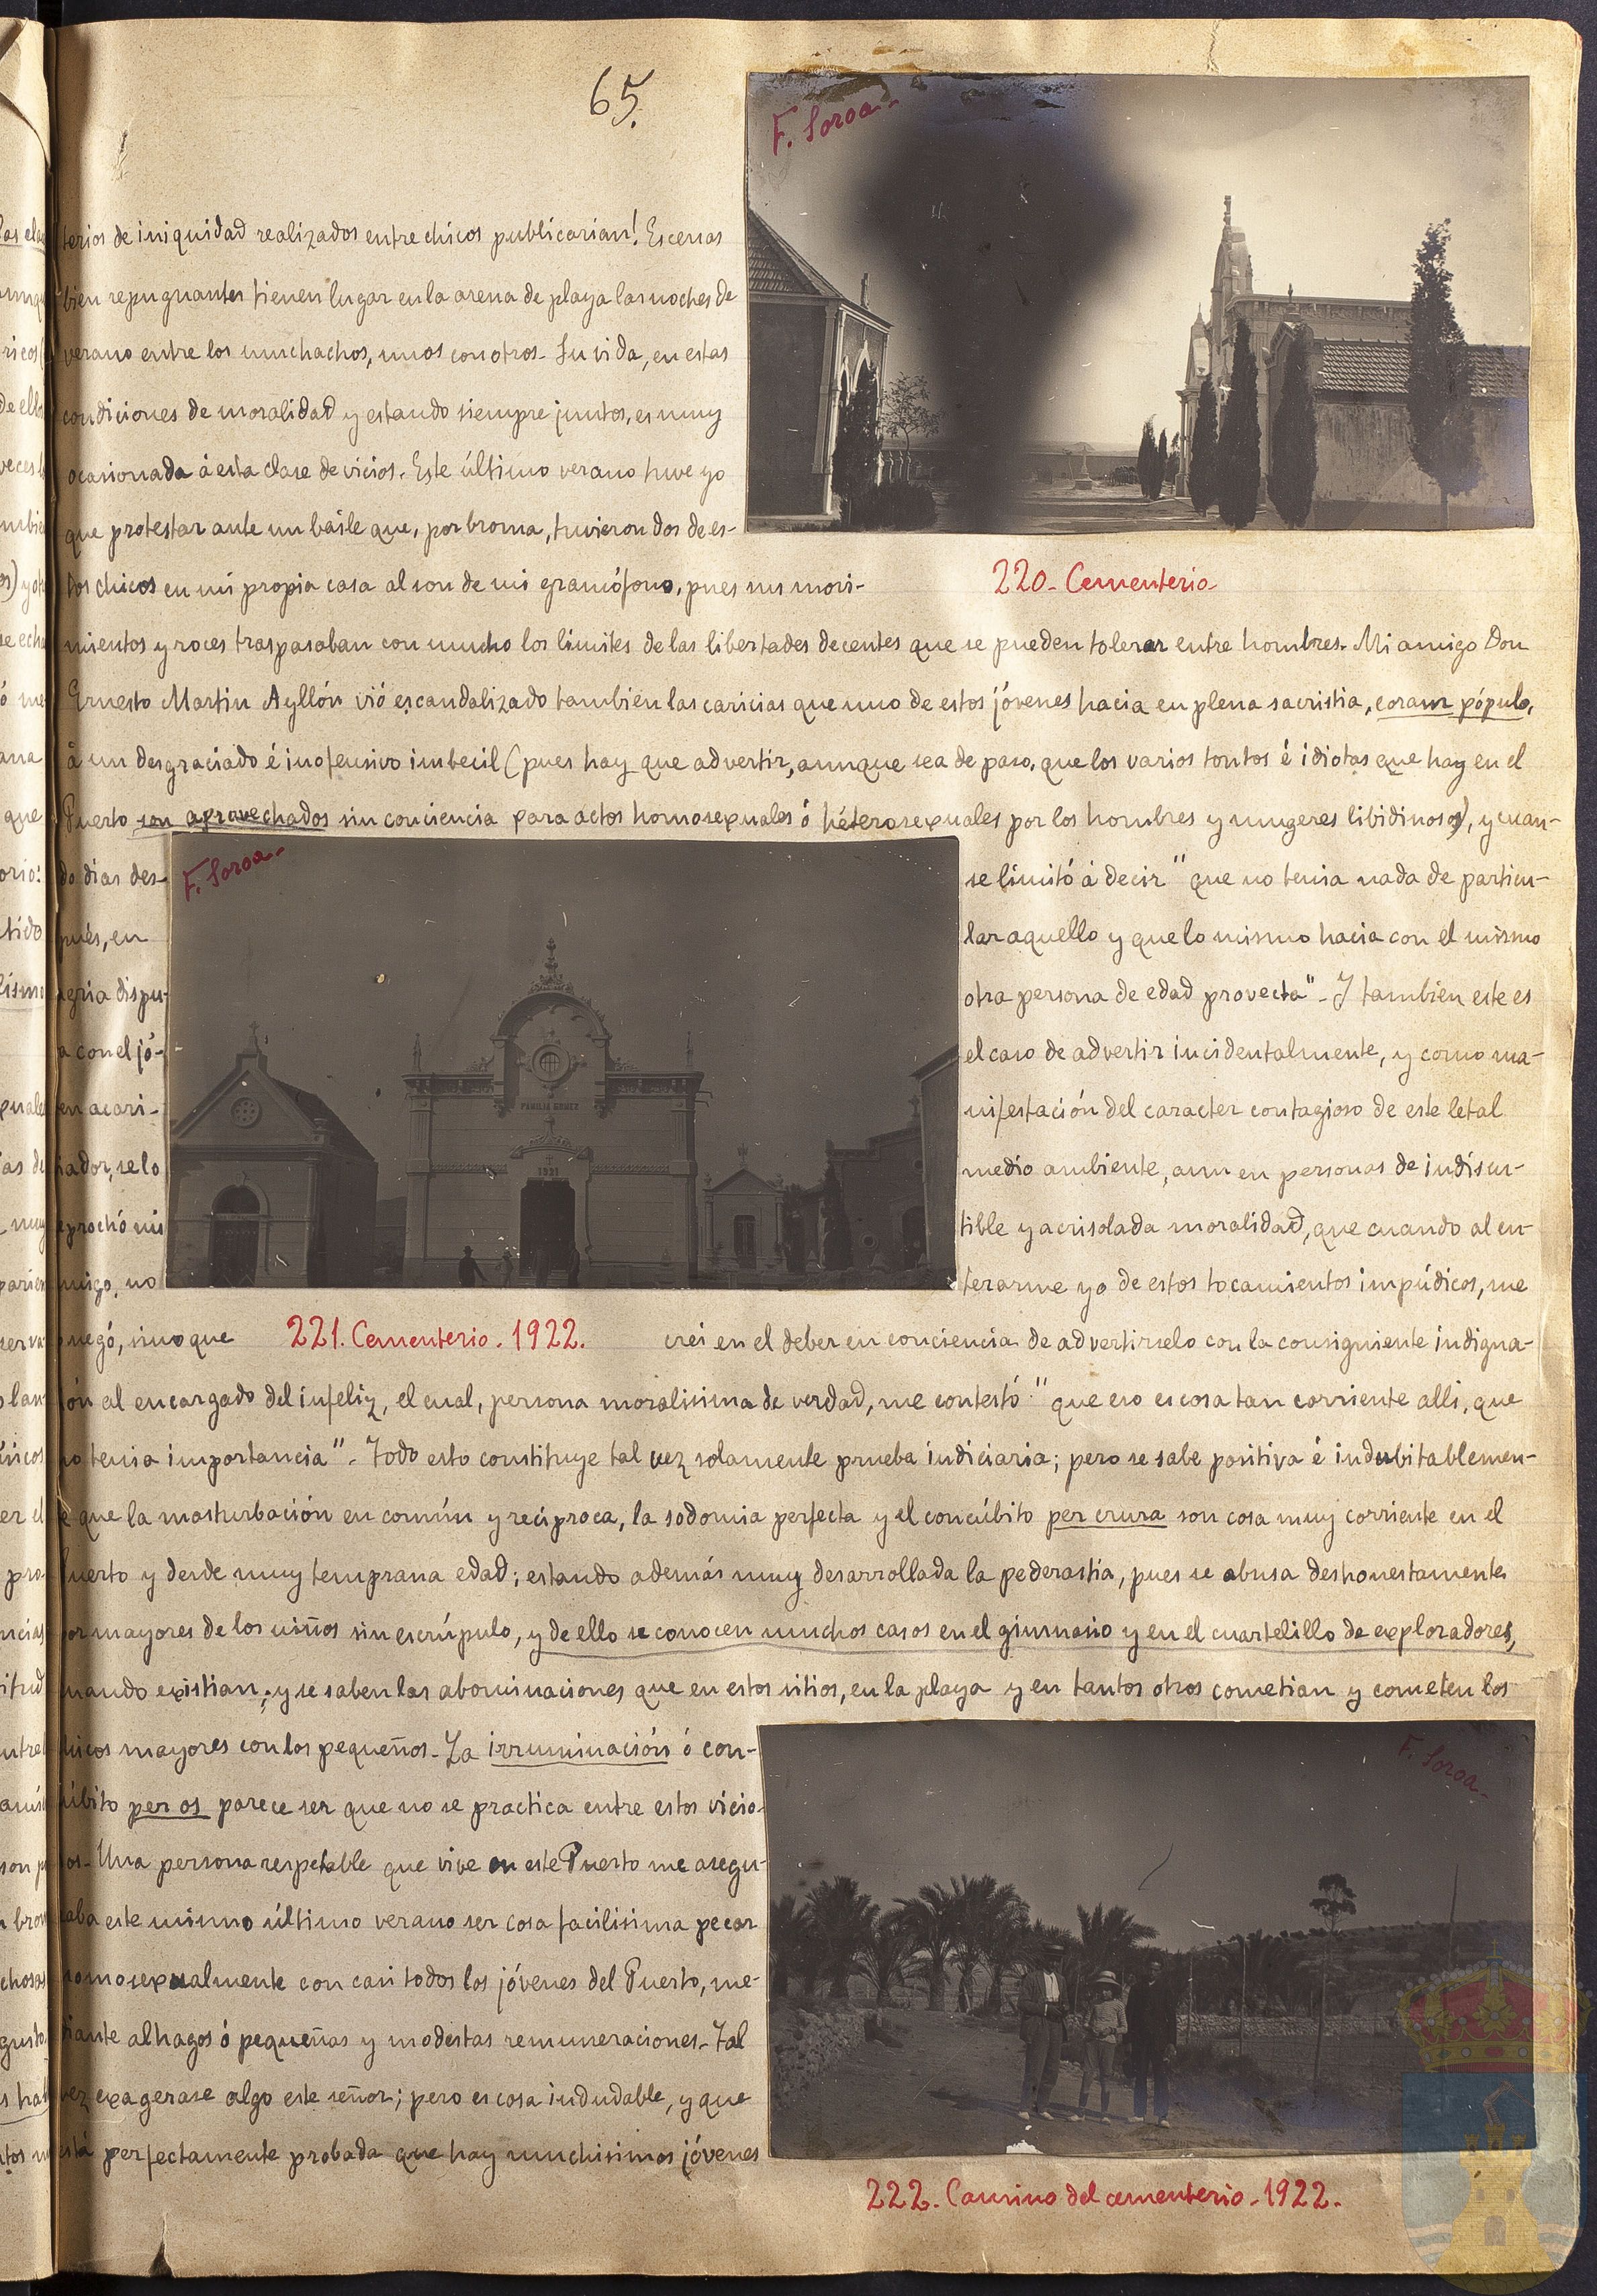 65.
F. Soroa
terios de iniquidad realizados entre chicos publicarian! Escenas
bien repugnantes tienen lugar en la arena de playa las noches de
verano entre los muchachos, unos con otros. Su vida, en estas
condiciones de moralidad y estando siempre juntos, es muy
ocasionada á esta clase de vicios. Este último verano tuve yo
que protestar ante un baile que, por broma, tuvieron dos de es-
tos chicos en mi propia casa al son de mi gramófono, pues sus movi-
220. Cementerio
mientos y roces traspasaban con mucho los límites de las libertades decentes que se pueden tolerar entre hombres. Mi amigo Don
Ernesto Martin Ayllón vió escandalizado también las caricias que uno de estos jóvenes hacia en plena sacristia, coram pópulo,
á un desgraciado é inofensivo imbecil (pues hay que advertir, aunque sea de paso, que los varios tontos é idiotas que hay en el
Puerto son aprovechados sin conciencia para actos homosexuales ó héterosexuales por los hombres y mugeres libidinosos), y cuan-
do dias des-
pués, en
agria dispu-
a con el jó-
en acari-
iador, se lo
eprochó mi
migo, no
negó, sino que
F. Soroa
FAMILIA GOMEZ
1921
221. Cementerio. 1922.
se limitó á decir "que no tenia nada de particu-
lar aquello y que lo mismo hacia con el mismo
otra persona de edad provecta". Y también este es
el caso de advertir incidentalmente, y como ma-
nifestación del caracter contagioso de este letal
medio ambiente, aun en personas de indiscu-
tible y acrisolada moralidad, que cuando al en-
terarme yo de estos tocamientos impúdicos, me
crei en el deber en conciencia de advertirselo con la consiguiente indigna-
ión al encargado del infeliz, el cual, persona moralisima de verdad, me contestó: "que eso es cosa tan corriente alli, que
no tenia importancia". Todo esto constituye tal vez solamente prueba indiciaria; pero se sabe positiva é indubitablemen-
te que la masturbación en común y reciproca, la sodomia perfecta y el concúbito per crura son cosa muy corriente en el
Puerto y desde muy temprana edad; estando además muy desarrollada la pederastia, pues se abusa deshonestamente
por mayores de los niños sin escrúpulo, y de ello se conocen muchos casos en el gimnasio y en el cuartelillo de exploradores,
cuando existian; y se saben las abominaciones que en estos sitios, en la playa y en tantos otros cometian y cometen los
hicos mayores con los pequeños. La irruminación ó con-
cúbito per os parece ser que no se practica entre estos vicio-
sos. Una persona respetable que vive en este Puerto me asegu-
raba este mismo último verano ser cosa facilisima pecar
homosexualmente con casi todos los jóvenes del Puerto, me-
diante alhagos ó pequeñas y modestas remuneraciones. Tal
vez exagerase algo este señor; pero es cosa indudable, y que
está perfectamente probada que hay muchisimos jóvenes
F. Soroa
222. Camino del cementerio. 1922.